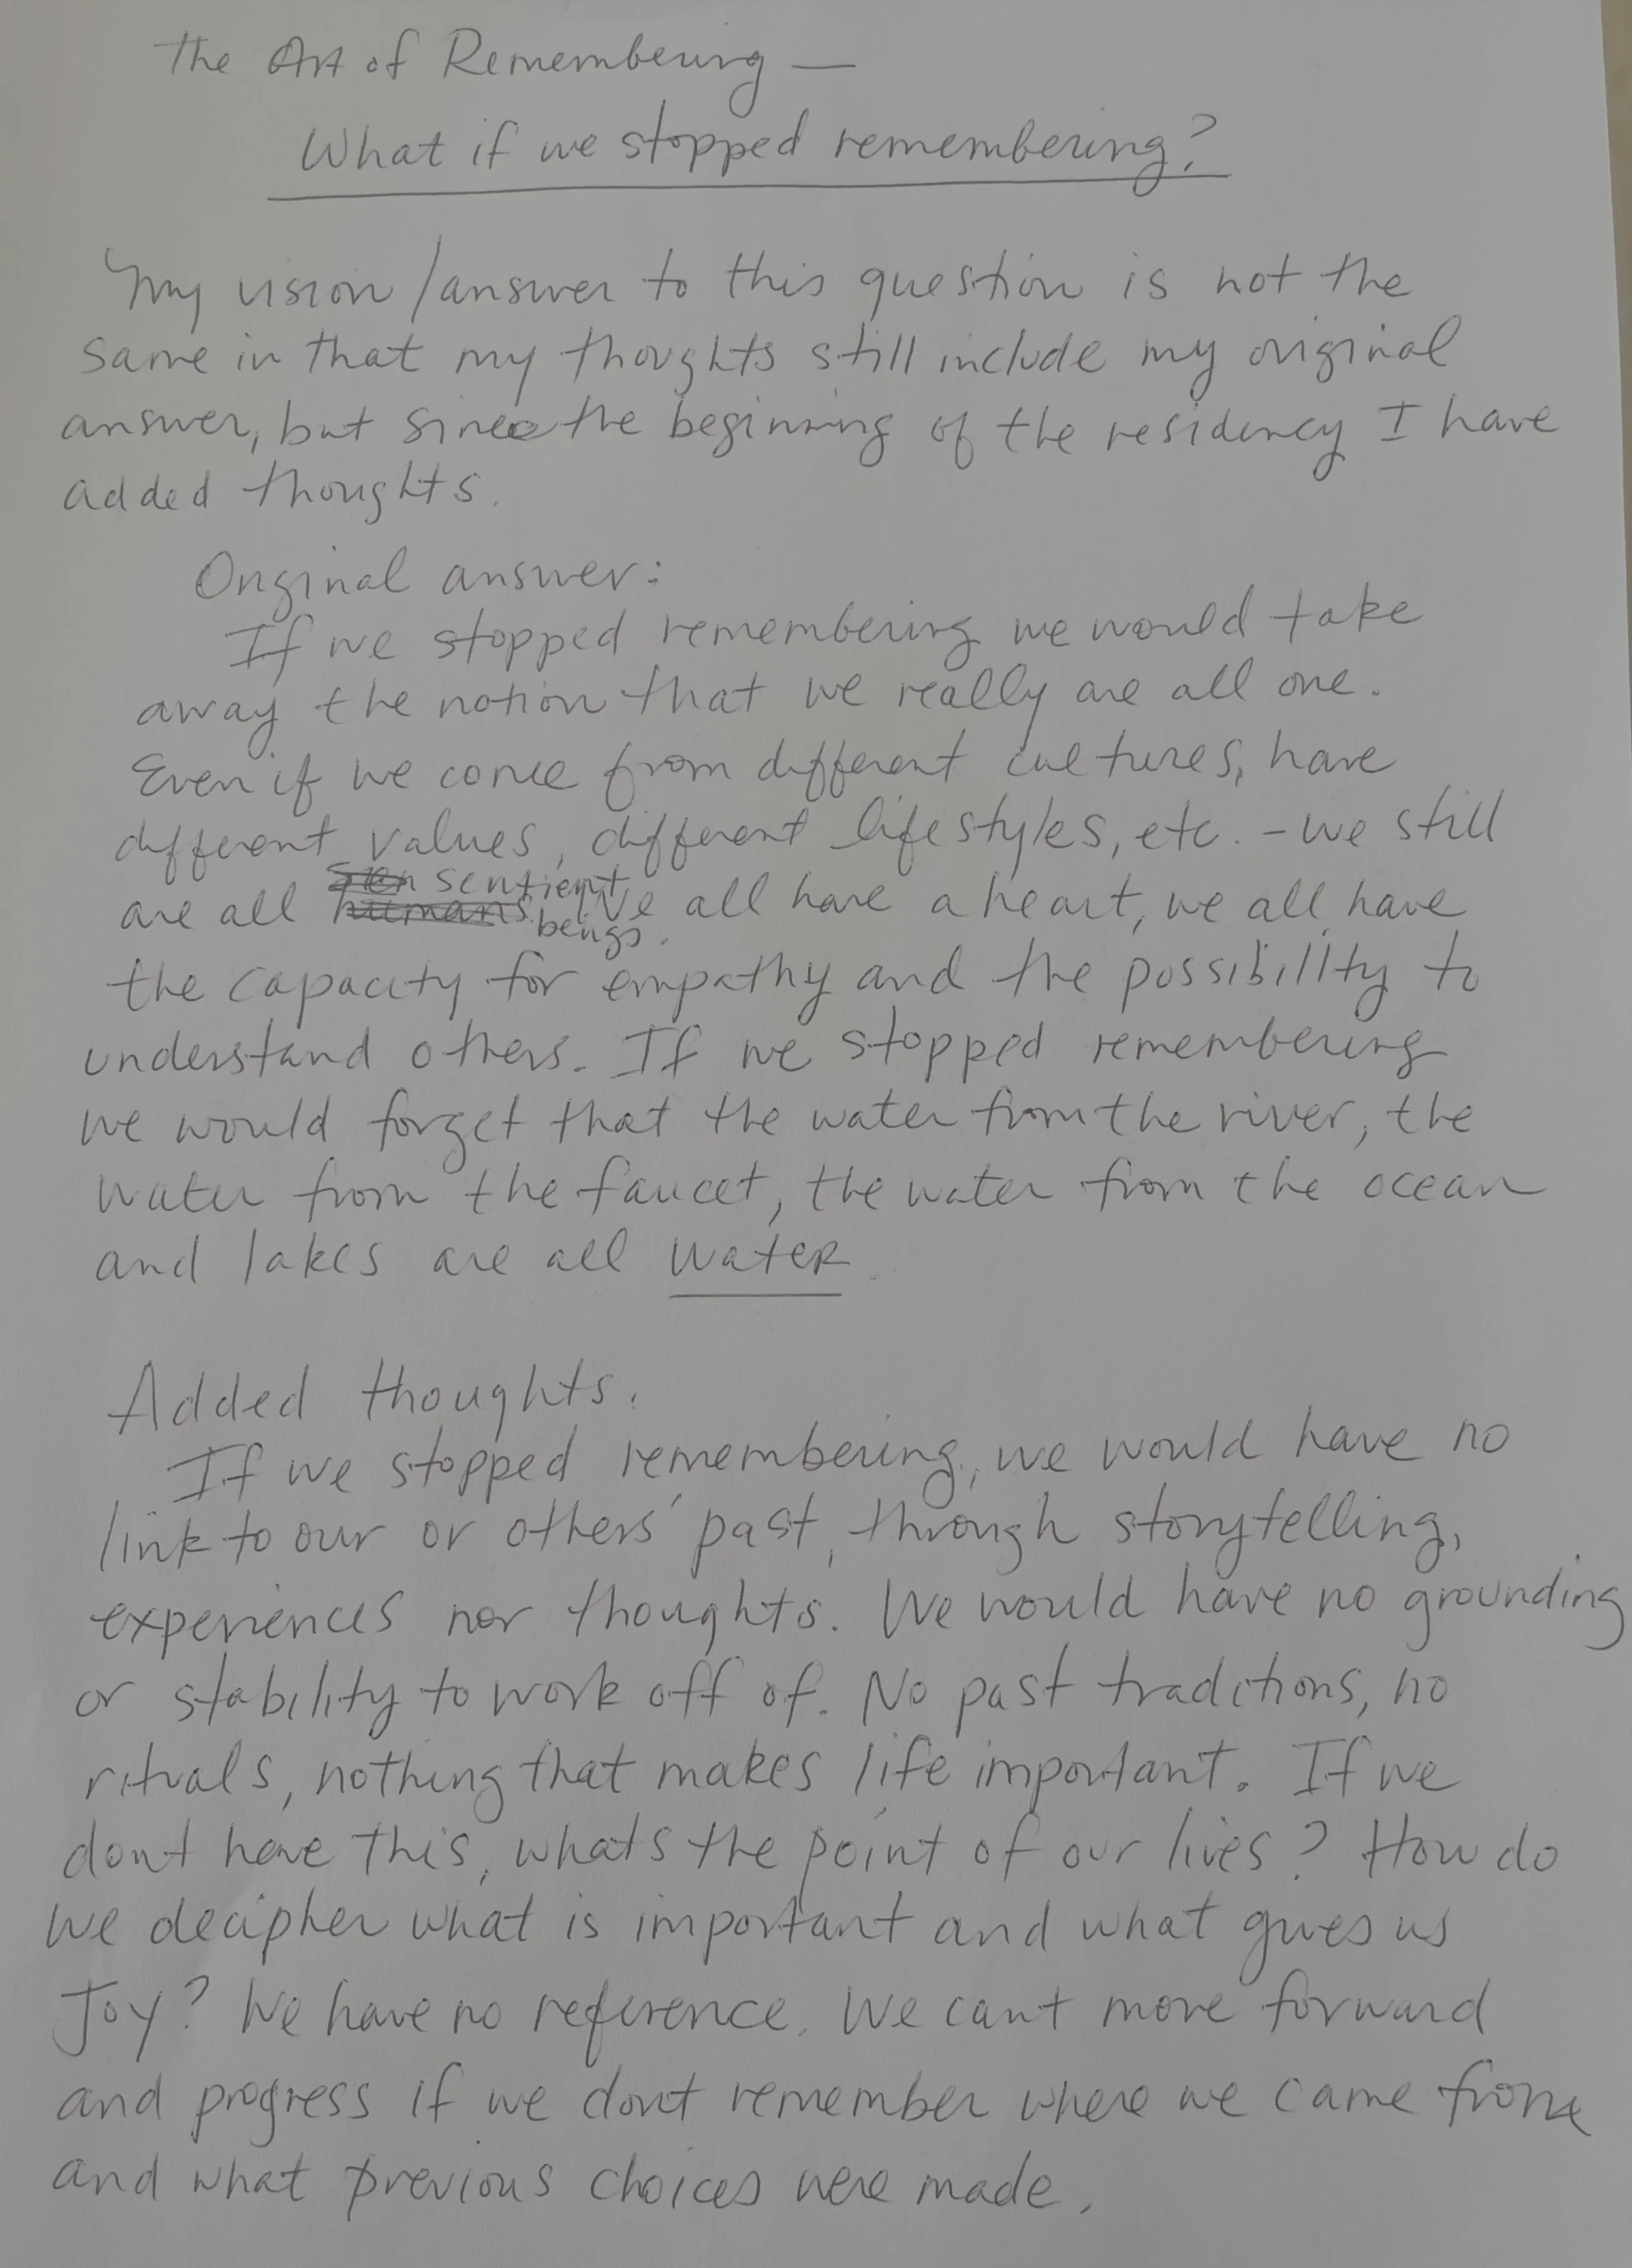 The Art of Remembering —
What if we stopped remembering?
My vision/answer to this question is not the
same in that my thoughts still include my original
answer, but since the beginning of the residency I have
added thoughts.
Original answer:
If we stopped remembering we would take
away the notion that we really are all one.
Even if we come from different cultures, have
different values, different lifestyles, etc. - we still
are all humans sentient beings. We all have a heart, we all have
the capacity for empathy and the possibility to
understand others. If we stopped remembering
we would forget that the water from the river, the
water from the faucet, the water from the ocean
and lakes are all water.
Added thoughts.
If we stopped remembering, we would have no
link to our or others' past, through storytelling,
experiences nor thoughts. We would have no grounding
or stability to work off of. No past traditions, no
rituals, nothing that makes life important. If we
dont have this, what's the point of our lives? How do
we decipher what is important and what gives us
Joy? We have no reference. We cant move forward
and progress if we dont remember where we came from
and what previous choices were made.